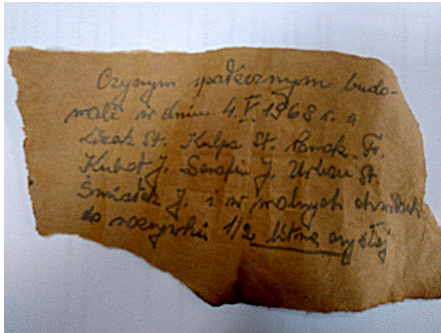 Czynym społecznym budo-
wali w dniu 4.V.1968 r. a
St. Kulpa St. Fr.
Kubat J. Serafin J. Urban St.
Świątek J. i w wolnych chwilach
do rozrywki 1/2 litra czystej